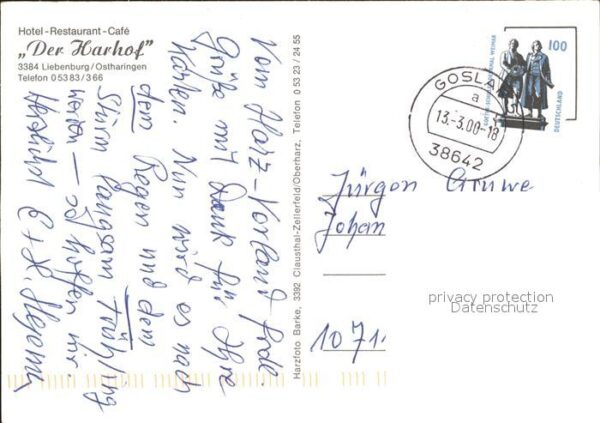 Hotel-Restaurant-Café
„Der Harhof"
3384 Liebenburg/Ostharingen
Telefon 0 53 83 / 3 66
Vom Harz-Vorland frdl.
Grüße mit Dank für Ihre
Karten. Nun wird es nach
dem Regen und dem
Sturm langsam Frühling
werden – so hoffen wir.
Herzlichst E + H.
Harzfoto Barke, 3392 Clausthal-Zellerfeld/Oberharz, Telefon 0 53 23 / 24 55
GOSLA
a
13.-3.00-18
38642
GOETHE-SCHILLER-DENKMAL WEIMAR
100
DEUTSCHLAND
Jürgen Gruwe
Johan
1071
privacy protection
Datenschutz